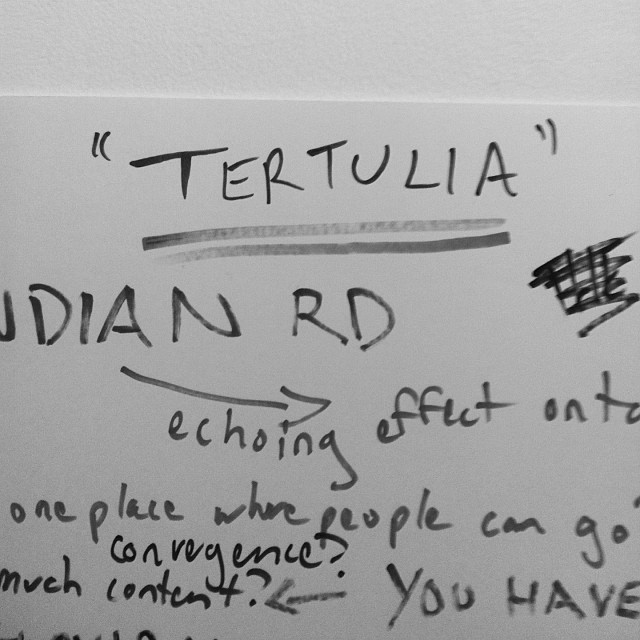 "TERTULIA"
NDIAN RD
echoing effect onto
one place where people can go
convergence?
much content? ← YOU HAVE